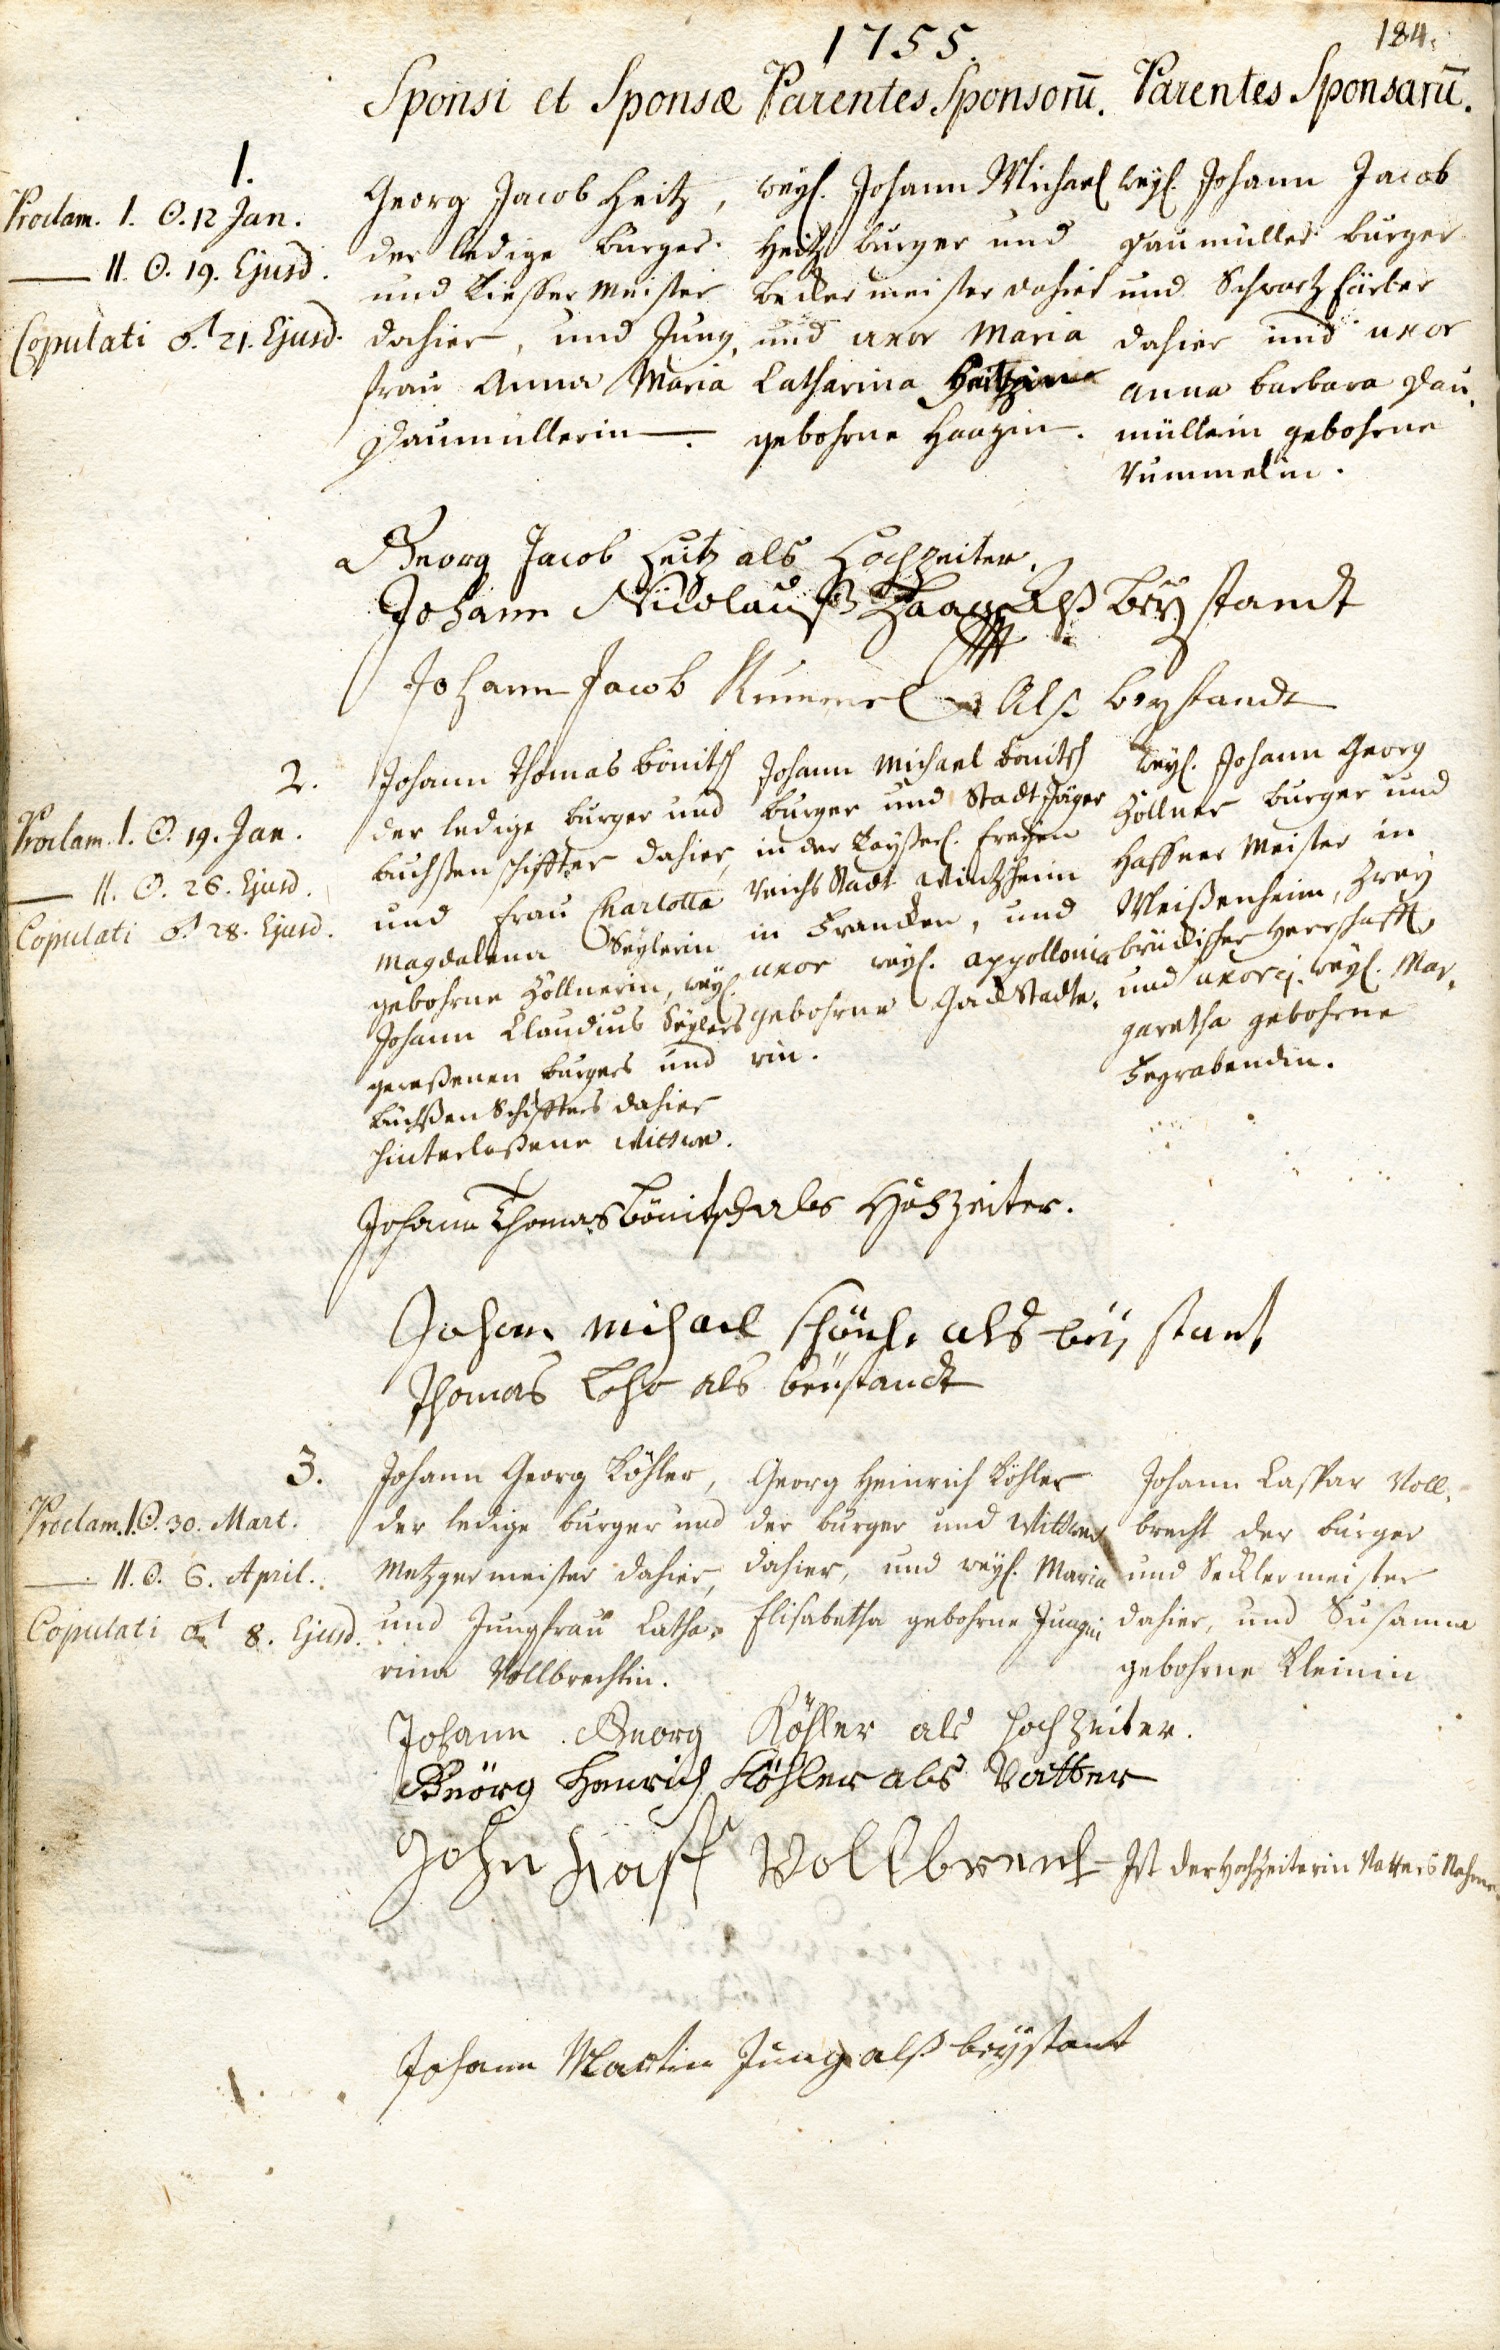 1755.
184.
Sponsi et Sponsæ
Parentes Sponsorū.
Parentes Sponsarū.
1.
Proclam. I. ☉. 12 Jan.
— II. ☉. 19. Ejusd.
Copulati ♂. 21. Ejusd.
Georg Jacob Heitz,
der ledige burger
und Kieffer Meister
dahier, und Jung,
frau Anna Maria
Daumüllerin —.
weyl. Johann Michael
Heitz burger und
becker meister dahier
und uxor Maria
Catharina Heitzin
gebohrne Haagin.
weyl. Johann Jacob
Daumüller burger
und Schwartz färber
dahier und uxor
Anna barbara Dau,
müllerin gebohrne
Rummelin.
Georg Jacob Heitz als Hochzeiter.
Johann Nicolauß Haag Alß beystandt
Johann Jacob Rummel Alß beystandt
2.
Proclam. I. ☉. 19. Jan.
— II. ☉. 26. Ejusd.
Copulati ♂. 28. Ejusd.
Johann Thomas Bönitsch
der ledige burger und
büchsenschiffter dahier,
und frau Charlotta
Magdalena Seylerin
gebohrne Zöllnerin, weyl.
Johann Claudius Seylers
geweßenen burgers und
büchßen Schiffters dahier
hinterlaßene wittwe.
Johann Michael Bönitsch
burger und Stadtjäger
in der Kayßerl. freyen
Reichs Stadt Wintzheim
in Francken, und
uxor weyl. Appollonia
gebohrne Gackstadte,
rin.
weyl. Johann Georg
Zöllner burger und
Haffner Meister in
Meißenheim, Zwey,
brückischer Herrschafft,
und uxor ej. weyl. Mar,
garetha gebohrne
Feyrabendin.
Johann Thomas Bönitsch als Hochzeiter.
Johann michael schönh. als bey stant
Thomas Lohr als beystandt
3.
Proclam. I. ☉. 30. Mart.
— II. ☉. 6. April.
Copulati ♂ 8. Ejusd.
Johann Georg Köhler,
der ledige burger und
Metzgermeister dahier,
und Jungfrau Catha,
rina Vollbrechtin.
Georg Heinrich Köhler
der burger und Wittwer
dahier, und weyl. Maria
Elisabetha gebohrne Jungin
Johann Caspar Voll,
brecht der burger
und Secklermeister
dahier, und Susanna
gebohrne Kleinin
Johann Georg Köhler als Hochzeiter.
Geörg Henrich Köhler als Vatter
John Kasp Vollbrecht
Ist der Hochzeiterin Vatters Nahme.
Johann Martin Jung alß beystant